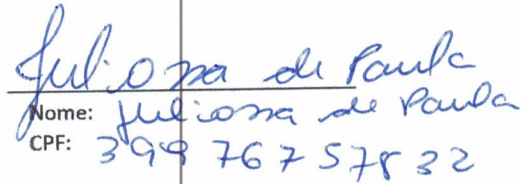 Juliossa de Paula
Nome: Juliossa de Paula
CPF: 399 767 578 32